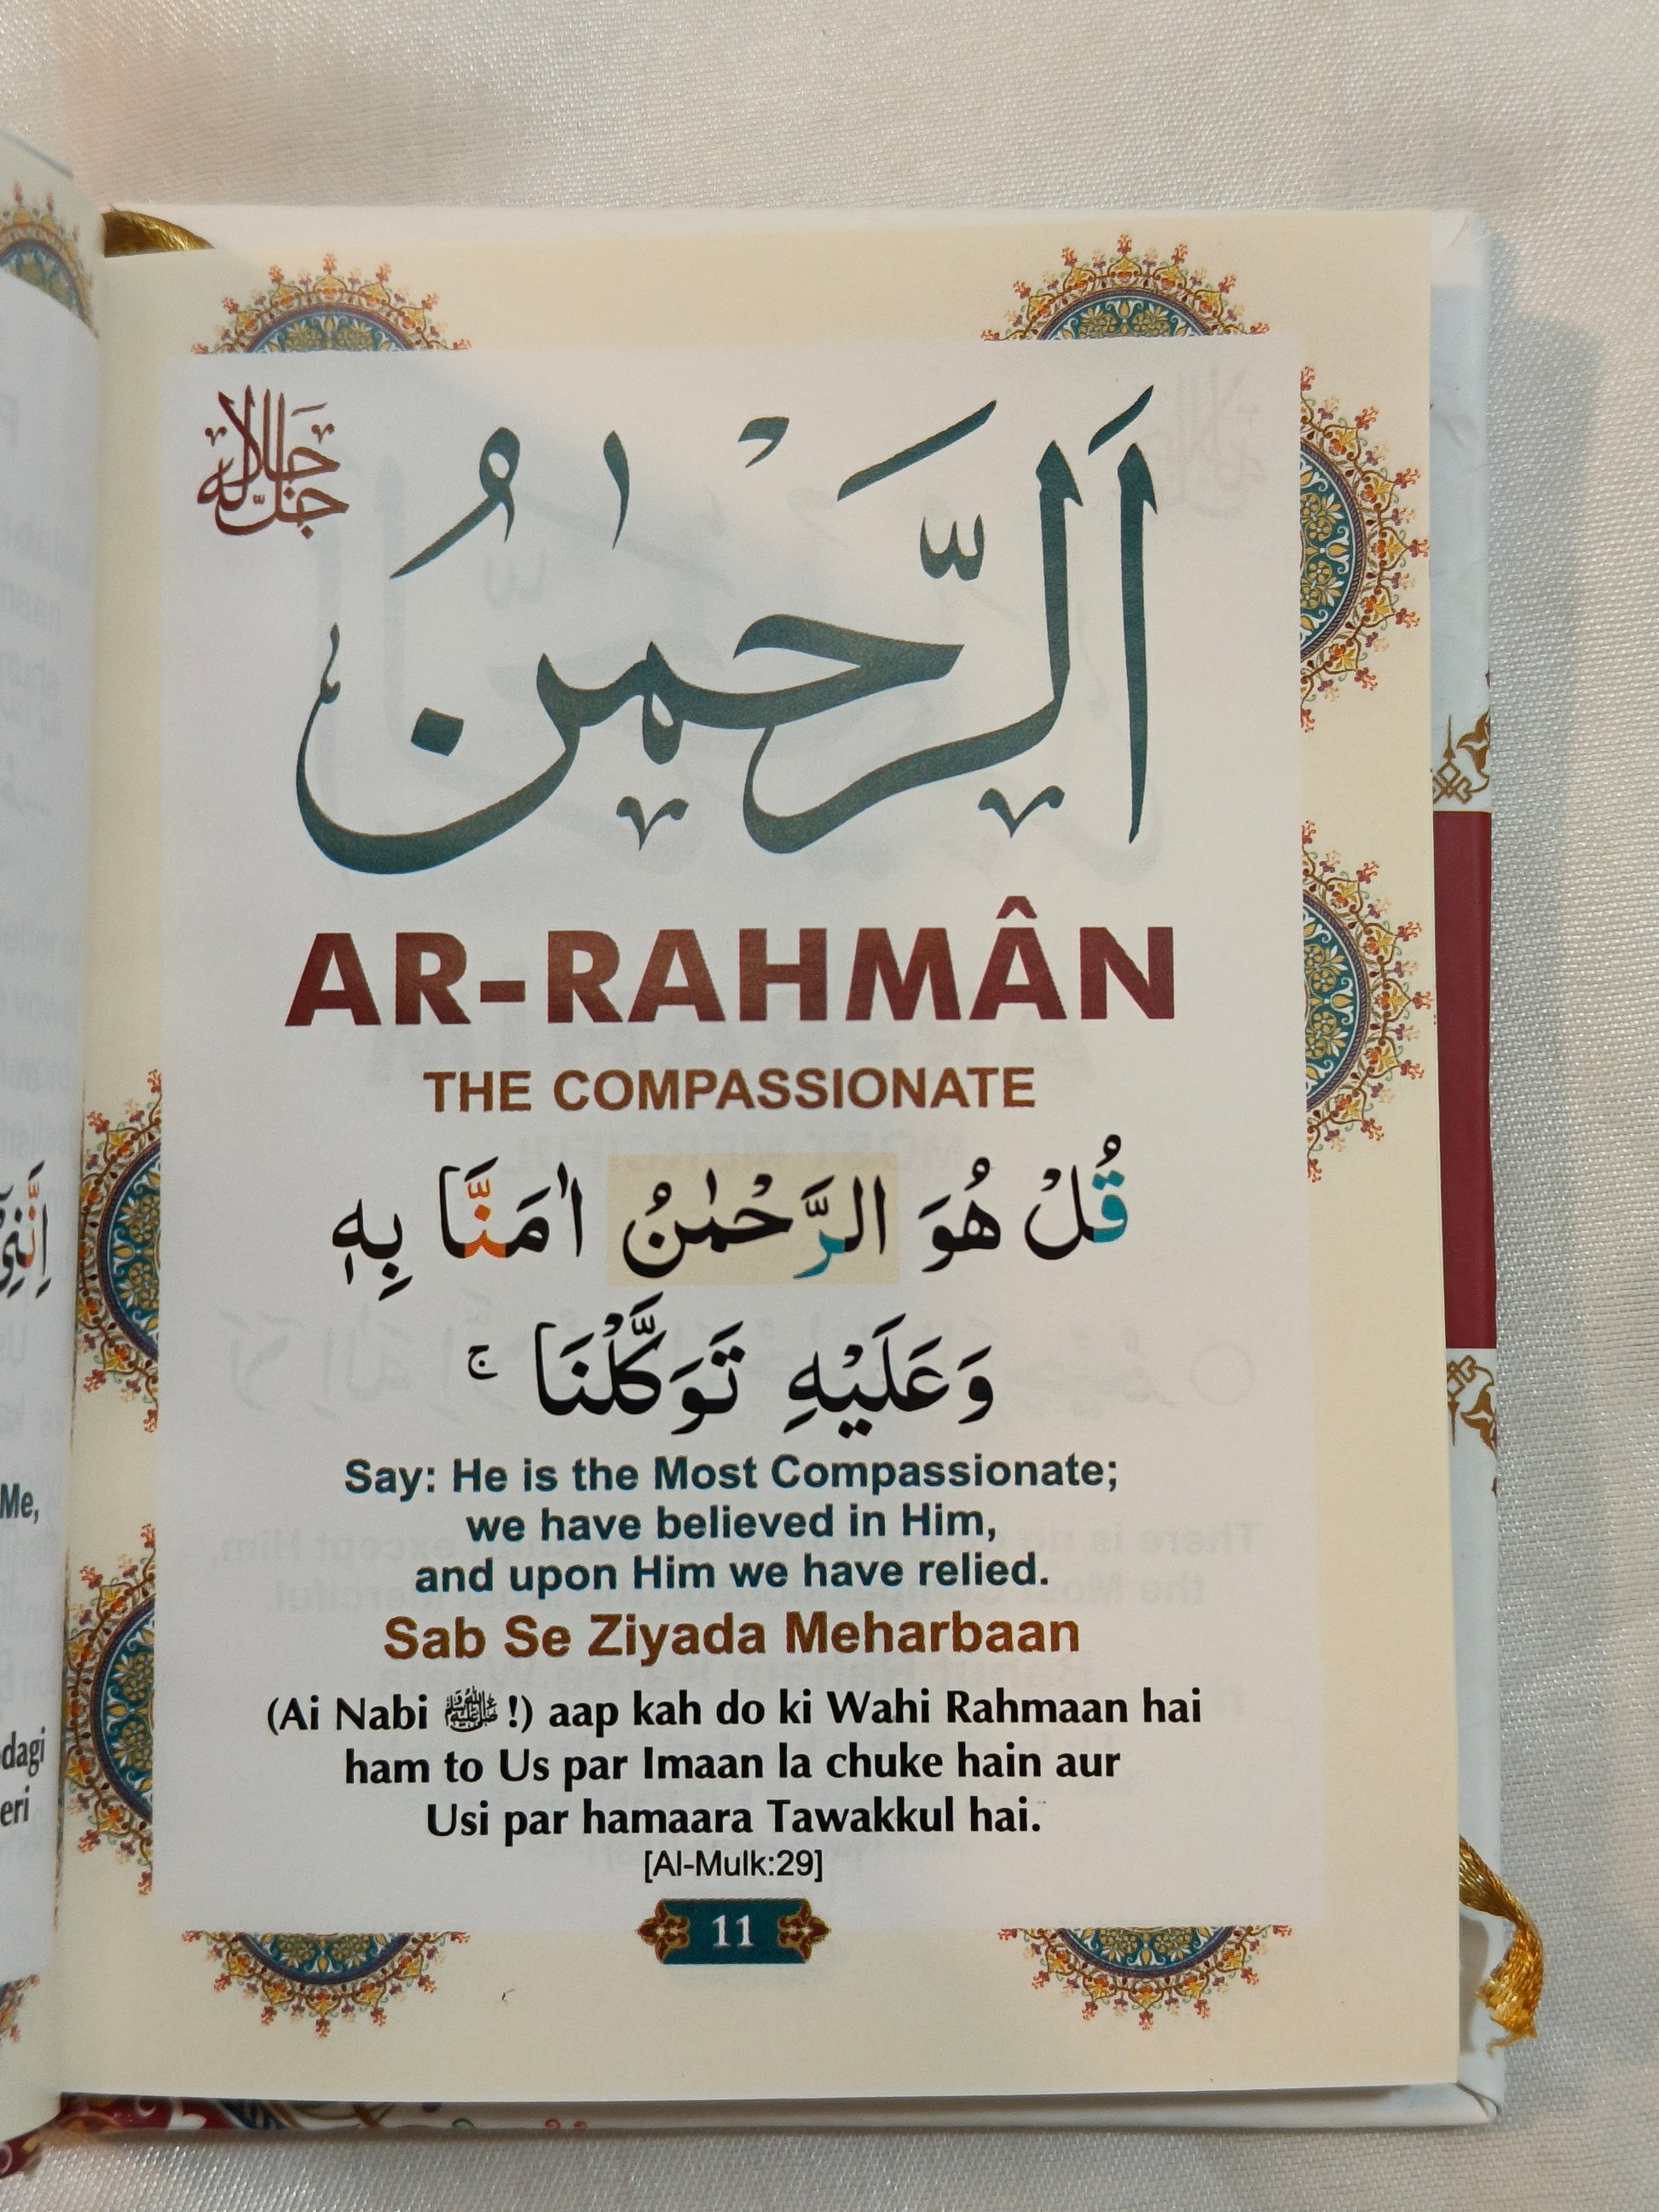 جل جلاله
اَلرَّحْمٰنُ
AR-RAHMÂN
THE COMPASSIONATE
قُلْ هُوَ الرَّحْمٰنُ اٰمَنَّا بِهٖ
وَعَلَيْهِ تَوَكَّلْنَا ۚ
Say: He is the Most Compassionate;
we have believed in Him,
and upon Him we have relied.
Sab Se Ziyada Meharbaan
(Ai Nabi ﷺ !) aap kah do ki Wahi Rahmaan hai
ham to Us par Imaan la chuke hain aur
Usi par hamaara Tawakkul hai.
[Al-Mulk:29]
11
Me,